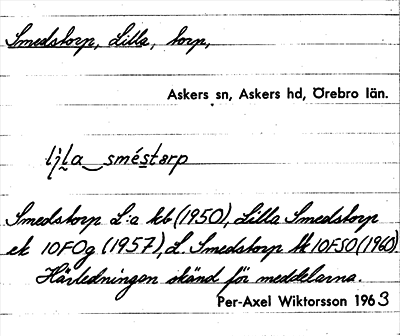 Smedstorp, Lilla, torp,
Askers sn, Askers hd, Örebro län.
lịla‿smés̱tarp
Smedstorp L:a kb (1950), Lilla Smedstorp
ek 10FOg (1957), L. Smedstorp tk 10FSO (1960).
Härledningen okänd för meddelarna.
Per-Axel Wiktorsson 1963